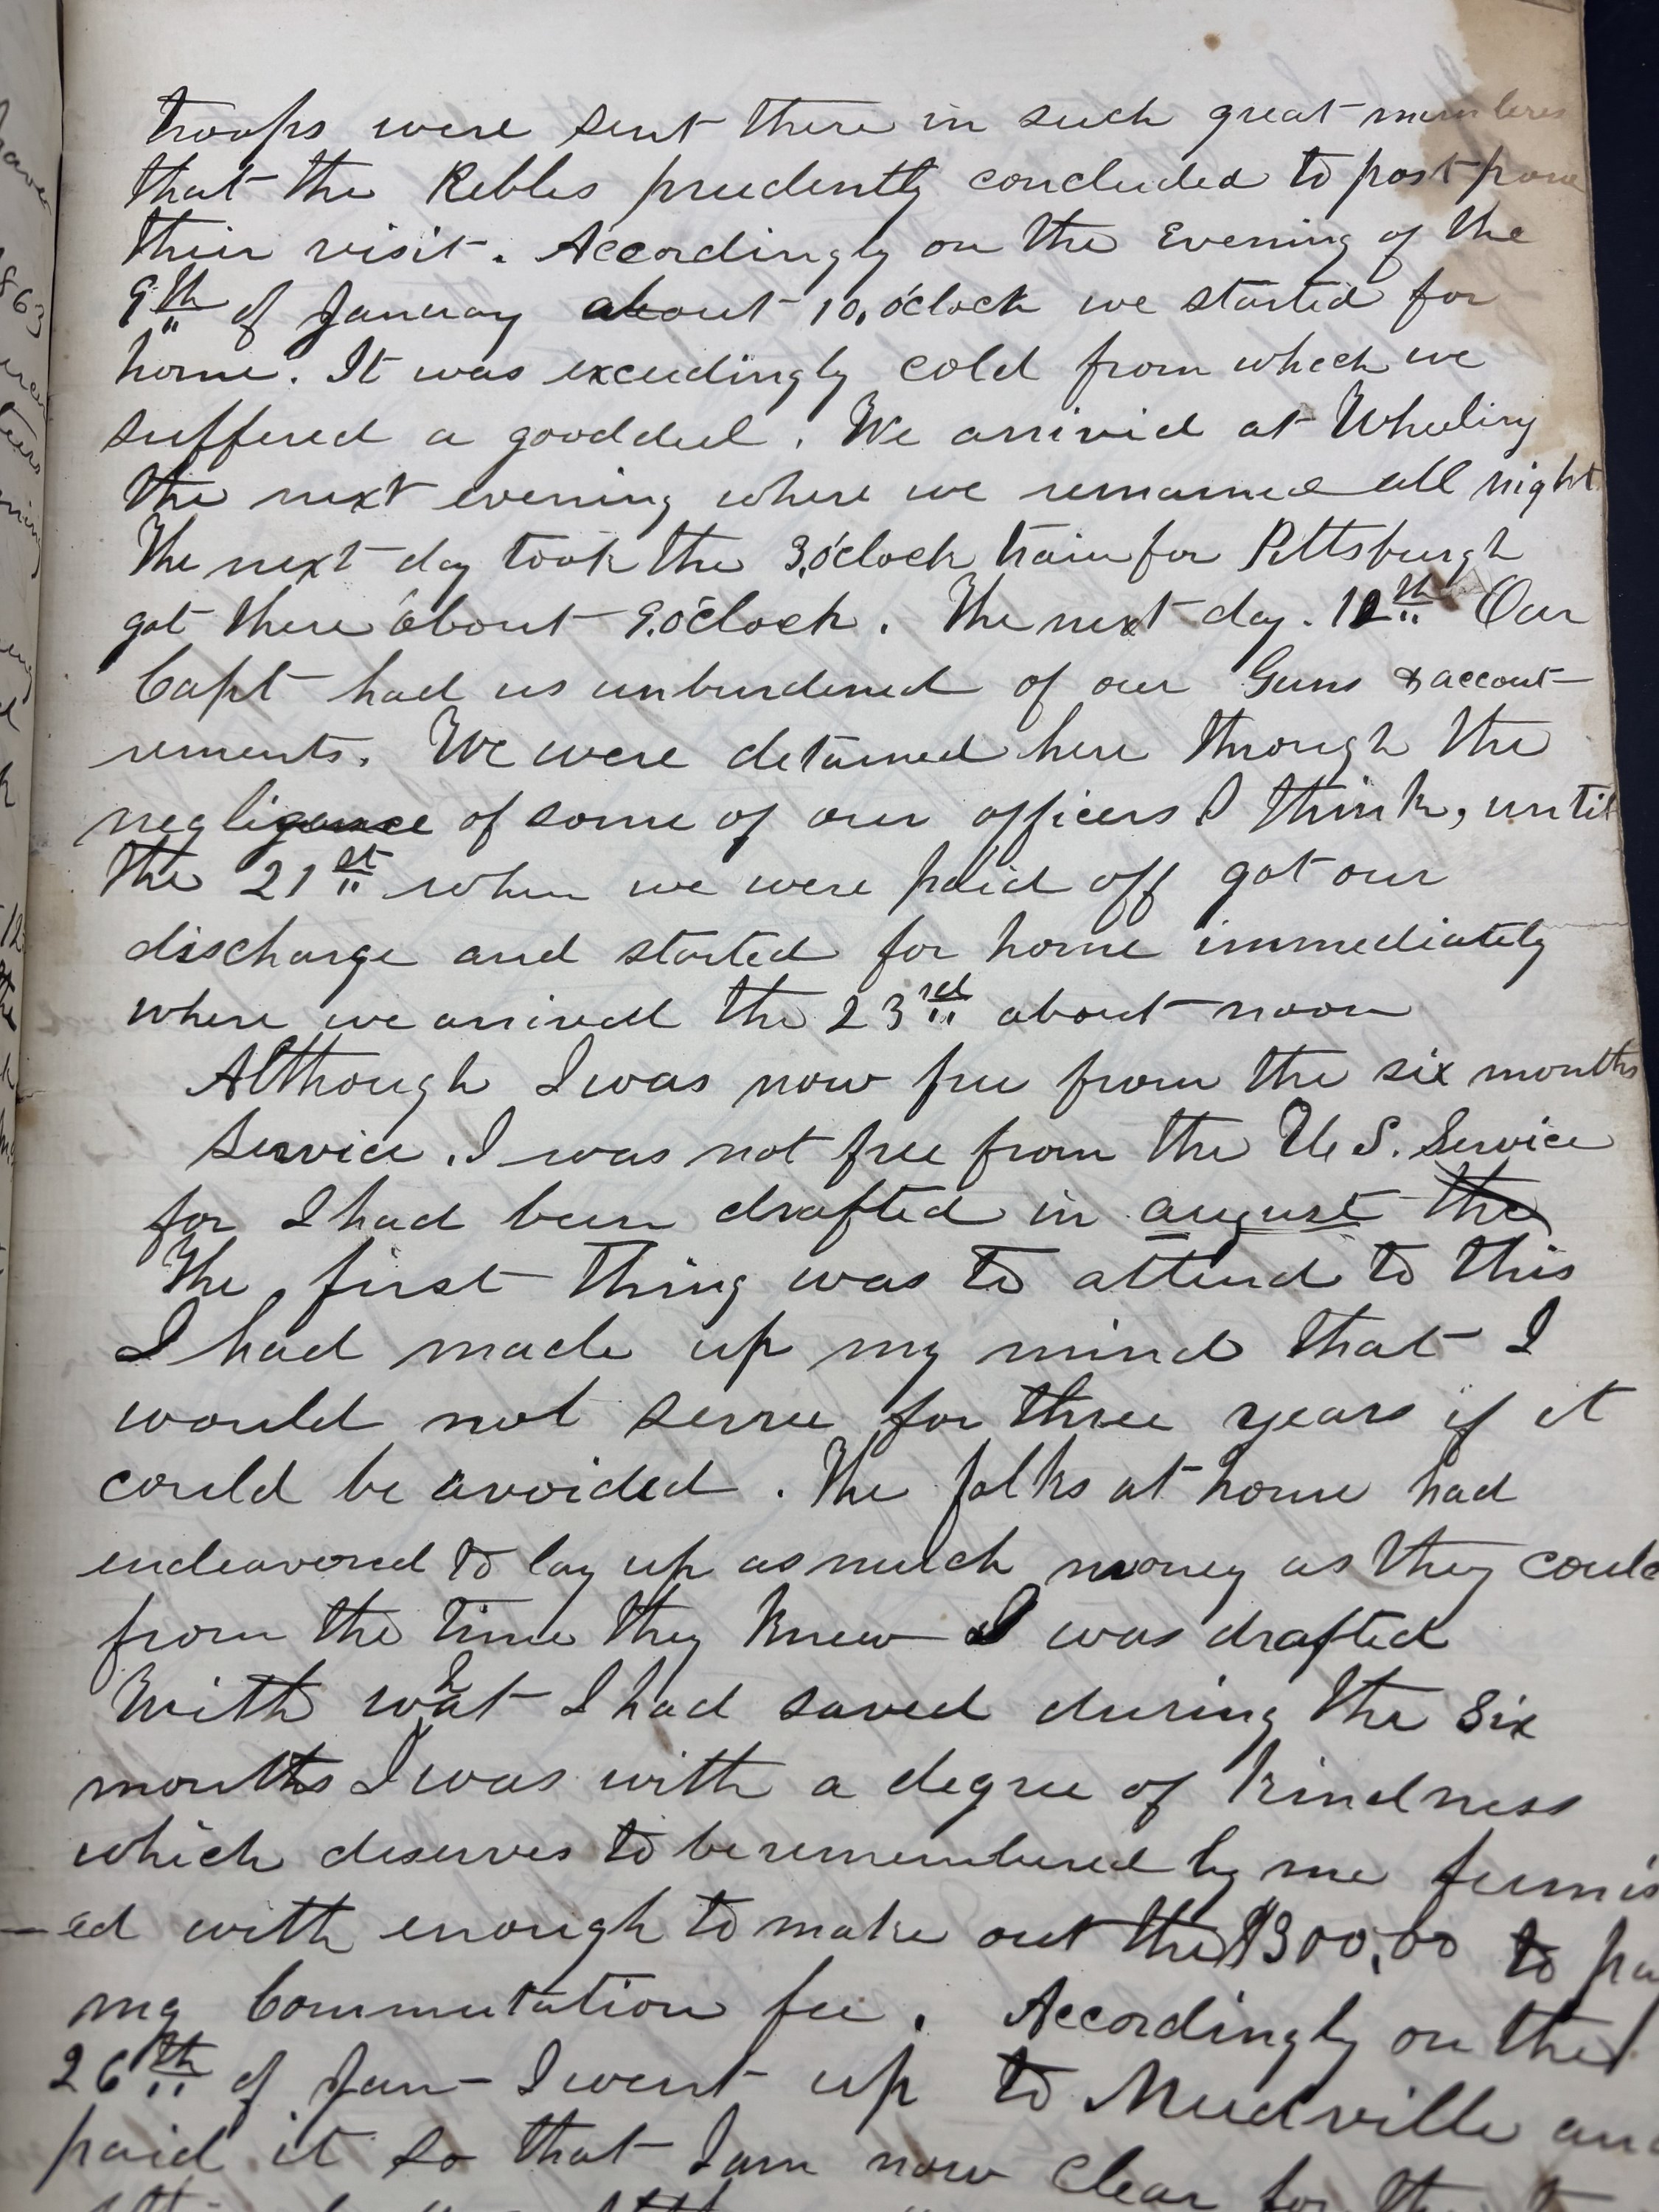 troops were sent there in such great numbers
that the Rebbles prudently concluded to post pone
their visit. Accordingly on the Evening of the
9th of January about 10,o'clock we started for
home. It was exceedingly cold from which we
suffered a good deel. We arrivid at Wheeling
the next evening where we remained all night.
The next day took the 3,o'clock train for Pittsburgh
got there about 9.o'clock. The next day. 12th Our
Capt had us unburdened of our Guns & accout-
rements. We were detained here through the
negligence of some of our officers I think, until
the 21st when we were paid off got our
discharge and started for home immediately
where we arrived the 23rd about noon
Although I was now free from the six months
Service. I was not free from the U.S. Service
for I had been drafted in august the
The first thing was to attend to this
I had made up my mind that I
would not serve for three years if it
could be avoided. The folks at home had
endeavored to lay up as much money as they could
from the time they knew I was drafted
With what I had saved during the six
months I was with a degree of kindness
which deserves to be remembered by me furnis
-ed with enough to make out the $300,00 to pa
my Commutation fee. Accordingly on the
26th of Jan- I went up to Meadville and
paid it so that I am now clear for the